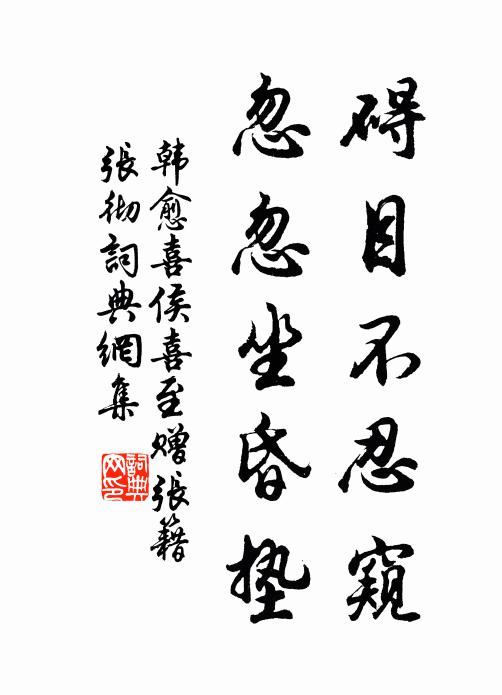 碍目不忍窺
忽忽坐昏垫
韩愈喜侯喜至赠張籍
張彻詞典網集
詞典
网印